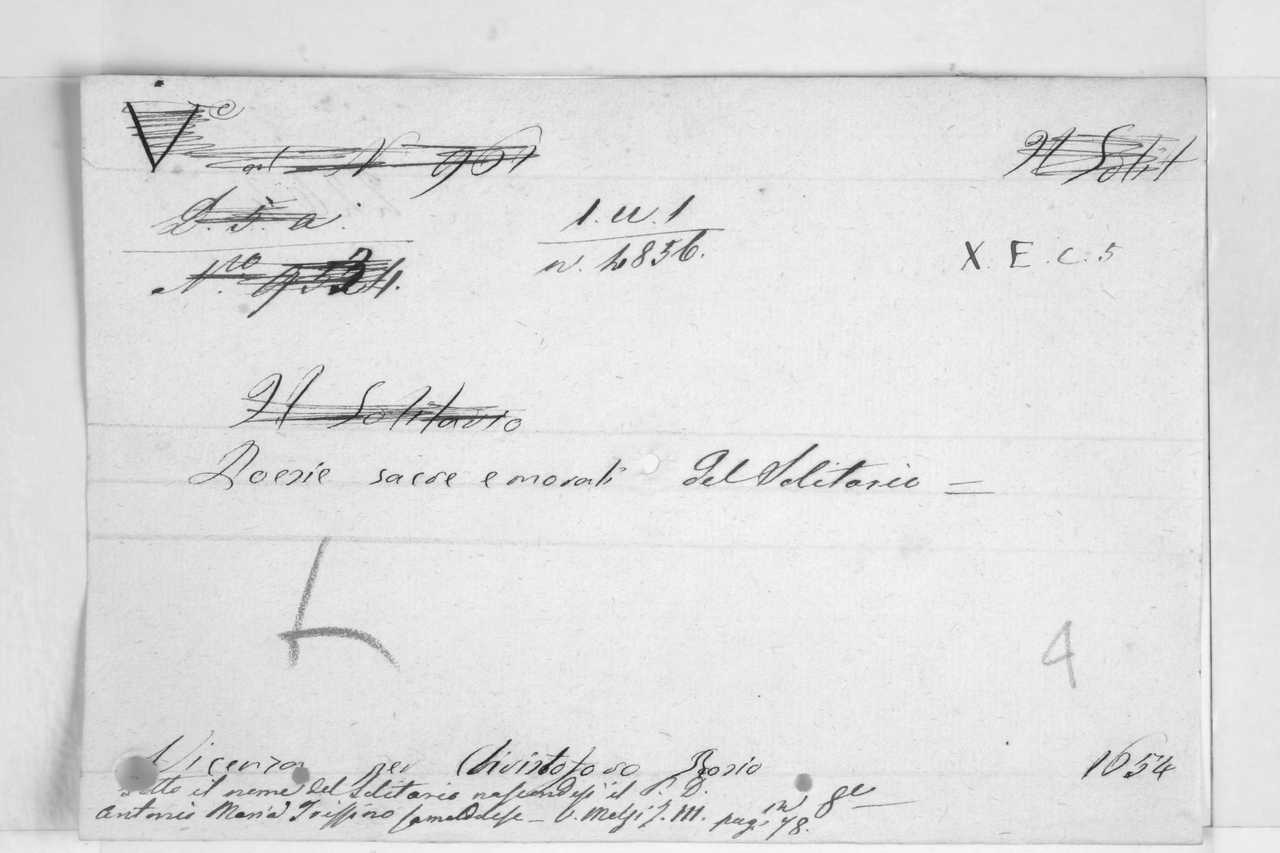 V
N 961
Il Solit
D. 5. a.
1. u. 1
X. E. c. 5
N.ro
n. 4856.
Il Solitario
Poesie sacre e morali del Solitario =
L
4
Vicenza per Christoforo Rosio 1654
Sotto il nome del Solitario nascondesi il P. D.
in 8º
Antonio Maria Trissino Camaldese - V. Melzi T. III. pag. 78.